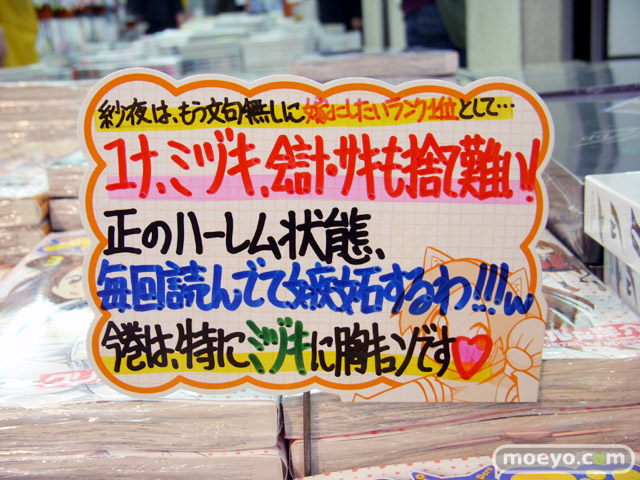 紗夜は、もう文句無しに嫁にしたいランク1位として…
ユナ、ミヅキ、会計・サキも捨て難い!
正のハーレム状態、
毎回読んでて嫉妬するわ!!!w
今巻は、特にミヅキに胸キュンです♥
moeyo.com